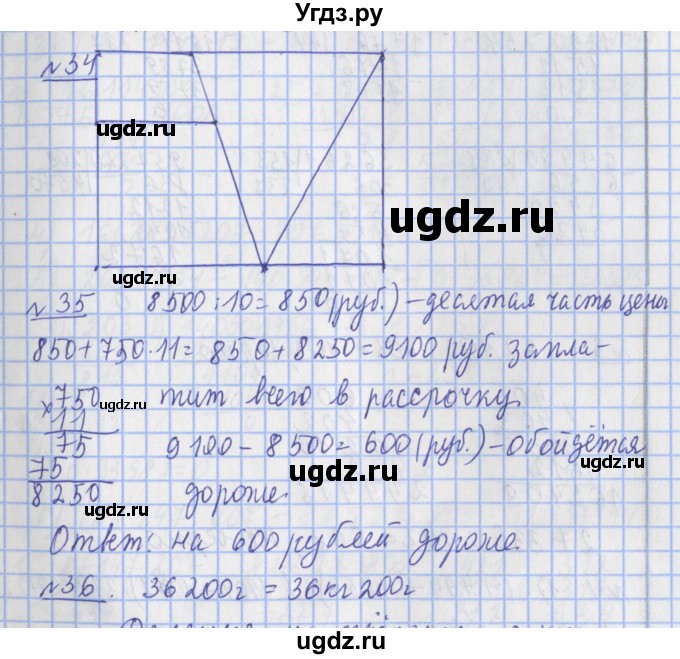 Угдз.ру
№34
ugdz.ru
ugdz.ru
ugdz.ru
№35 8500:10=850(руб.)-десятая часть цены
850+750·11=850+8250=9100 руб. запла-
×750 тит всего в рассрочку.
ugdz.ru
11
75 9100-8500=600(руб.)-обойдётся
75
ugdz.ru
ugdz.ru
8250 дороже.
ugdz.ru
ugdz.ru
Ответ: на 600 рублей дороже.
ugdz.ru
№36. 36200г = 36кг 200г
ugdz.ru